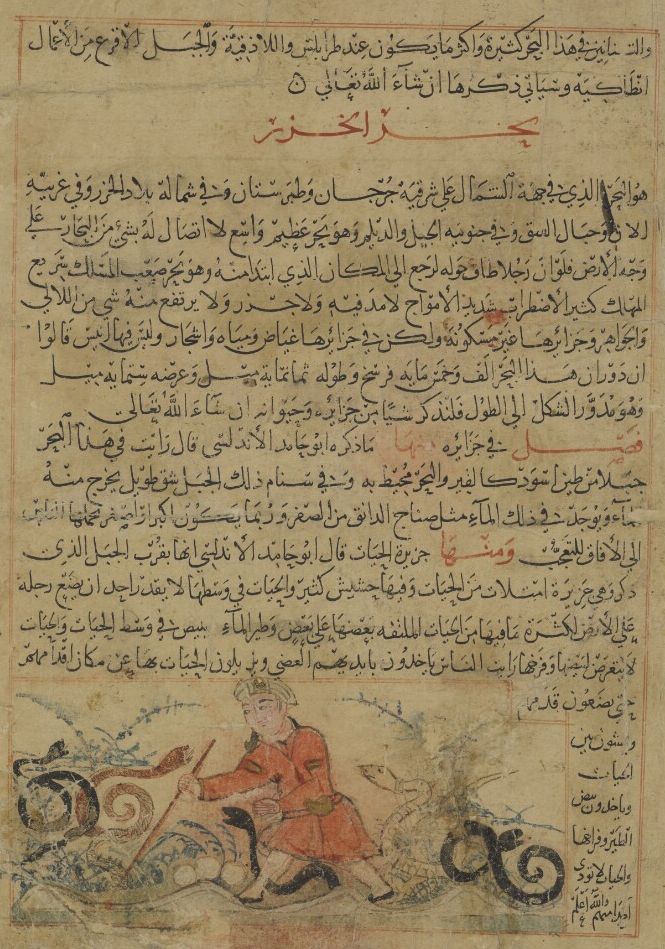 والتنانين في هذا البحر كثيرة واكثر ما يكون عند طرابلس واللاذقية والجبل الاقرع من الاعمال
انطاكيه وسياتي ذكرها ان شآء الله تعالى
بحر الخزر
هو البحر الذي في جهة الشمال على شرقيه جرجان وطبرستان وفي شماله بلاد الخزر وفي غربيه
اللان وجبال القبق وفي جنوبيه الجيل والديلم وهو بحر عظيم واسع لا اتصال له بشئ من البحار على
وجه الارض فلو ان رجلا طاف حوله لرجع الى المكان الذي ابتدا منه وهو بحر صعب المسلك سريع
المهلك كثير الاضطراب شديد الامواج لا مد فيه ولا جزر ولا يرتفع منه شي من اللالي
والجواهر وجزائرها غير مسكونة ولكن في جزائرها غياض ومياه واشجار وليس فيها انيس قالوا
ان دوران هذا البحر الف وخمس مايه فرسخ وطوله ثمانماية ميل وعرضه ستمايه ميل
وهو مدور الشكل الى الطول فلنذكر شيا من جزائره وحيوانه ان شآء الله تعالى
فصل في جزائره منها ما ذكره ابو حامد الاندلسى قال رايت في هذا البحر
جبلا من طين اسود كالقير والبحر محيط به وفي سنام ذلك الجبل شق طويل يخرج منه
المآء ويوجد في ذلك المآء مثل صناج الدانق من الصفر وربما يكون اكبر او اصغر يحملها الناس
الى الآفاق للتعجب ومنها جزيرة الحيات قال ابو حامد الاندلسي انها بقرب الجبل الذي
ذكر وهي جزيرة امتلات من الحيات وفيها حشيش كثير والحيات في وسطها لا يقدر احد ان يضع رجله
على الارض لكثرة ما فيها من الحيات الملتفه بعضها على بعض وطير المآء يبيض في وسط الحيات والحيات
لا يتعرض لبيضها وفرخها رايت الناس ياخذون بايديهم العصى ويزيلون الحيات بها عن مكان اقدامهم
حتى يضعون قدمهم
ويمشون بين
الحيات
وياخذون بيض
الطير وفراخها
والحيات لا توذى
احدا منهم والله اعلم